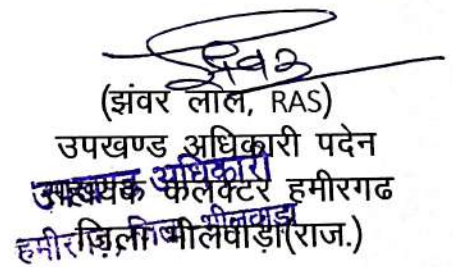 झंवर
(झंवर लाल, RAS)
उपखण्ड अधिकारी पदेन
सहायक कलेक्टर हमीरगढ
जिला भीलवाड़ा(राज.)
उपखण्ड अधिकारी
हमीरगढ़, जिला भीलवाड़ा